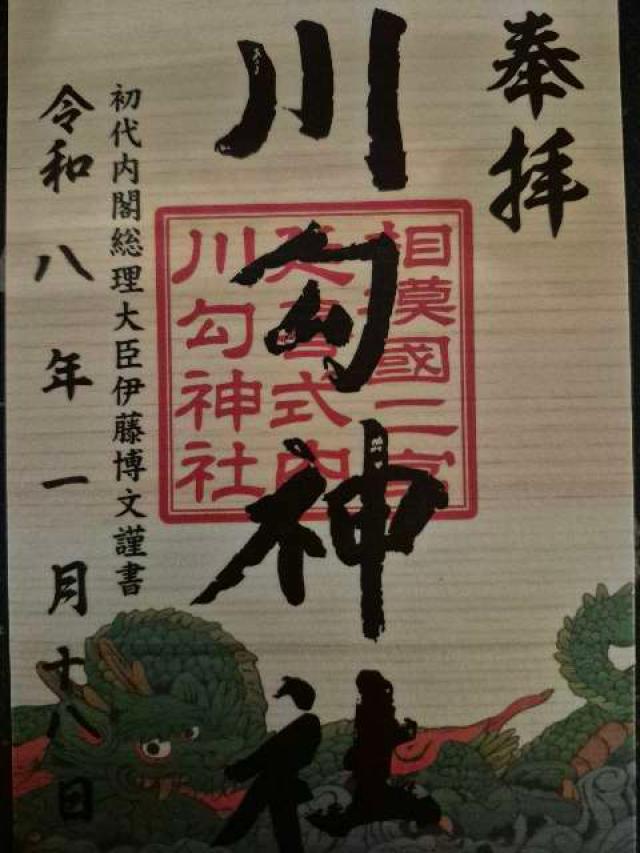 奉拝
川勾神社
相模國二宮
延喜式内
川勾神社
初代内閣総理大臣伊藤博文謹書
令和八年一月十八日